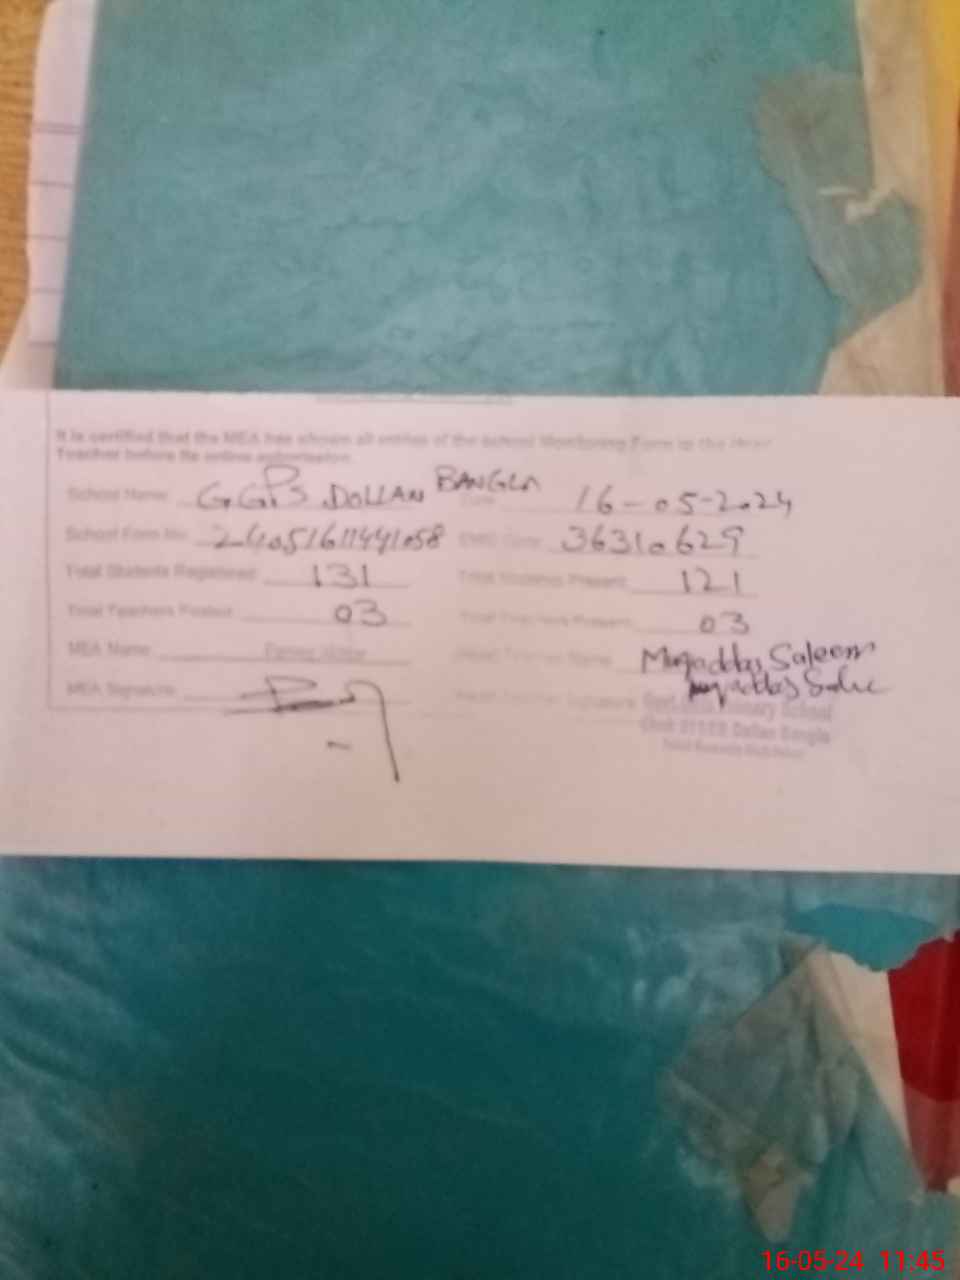 It is certified that the MEA has shown all entries of the School Monitoring Form to the Head
Teacher before its online submission.
School Name G.GPS DOLLAN BANGLA Date 16-05-2024
School Form No 24051611441058 EMIS Code 36310629
Total Students Registered 131 Total Students Present 121
Total Teachers Posted 03 Total Teachers Present 03
MEA Name Head Teacher Name Muqaddas Saleem
MEA Signature Head Teacher Signature
Primary School
Dollan Bangla
16-05-24 11:45